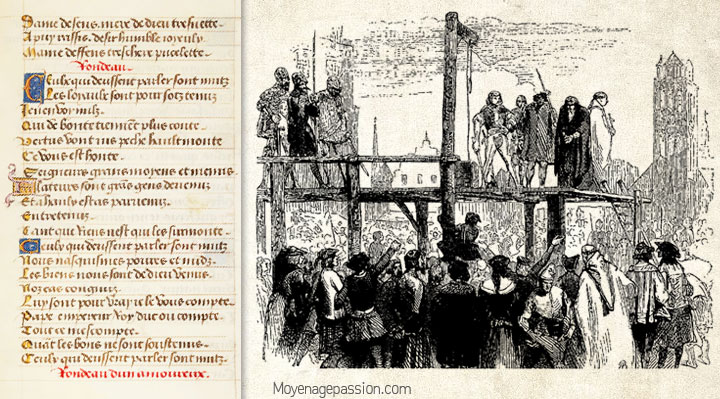 Dame de sens, mere de dieu tresnette
Apuy rassis. desir humble ioyeulx
Dame deffens treschere pucelette
Rondeau
Ceulx qui deussent parler sont mutz
Les loyaulx sont pour sotz tenuz
Je nen voy nulz
Qui de bonte tiennẽt plus conte
Vertus vont ius peche hault monte
Ce vous est honte
Seigneurs grans moyens et menus
Flateurs sont grãs gens devenuz
Et a haulx estas parvenuz
Entretenuz
Tant que riens nest qui les surmonte
Ceulx qui deussent parler sont mutz
Nous nasquismes povres et nudz
Les biens nous sont de dieu venus
Noz cas congnuz
Luy sont pour vray ie le vous compte
Pape empereur roy duc ou compte
Tout ce mescompte
Quãt les bons ne sont soustenus
Ceulx qui deussent parler sont mutz
Rondeau dun amoureux.
Moyenagepassion.com